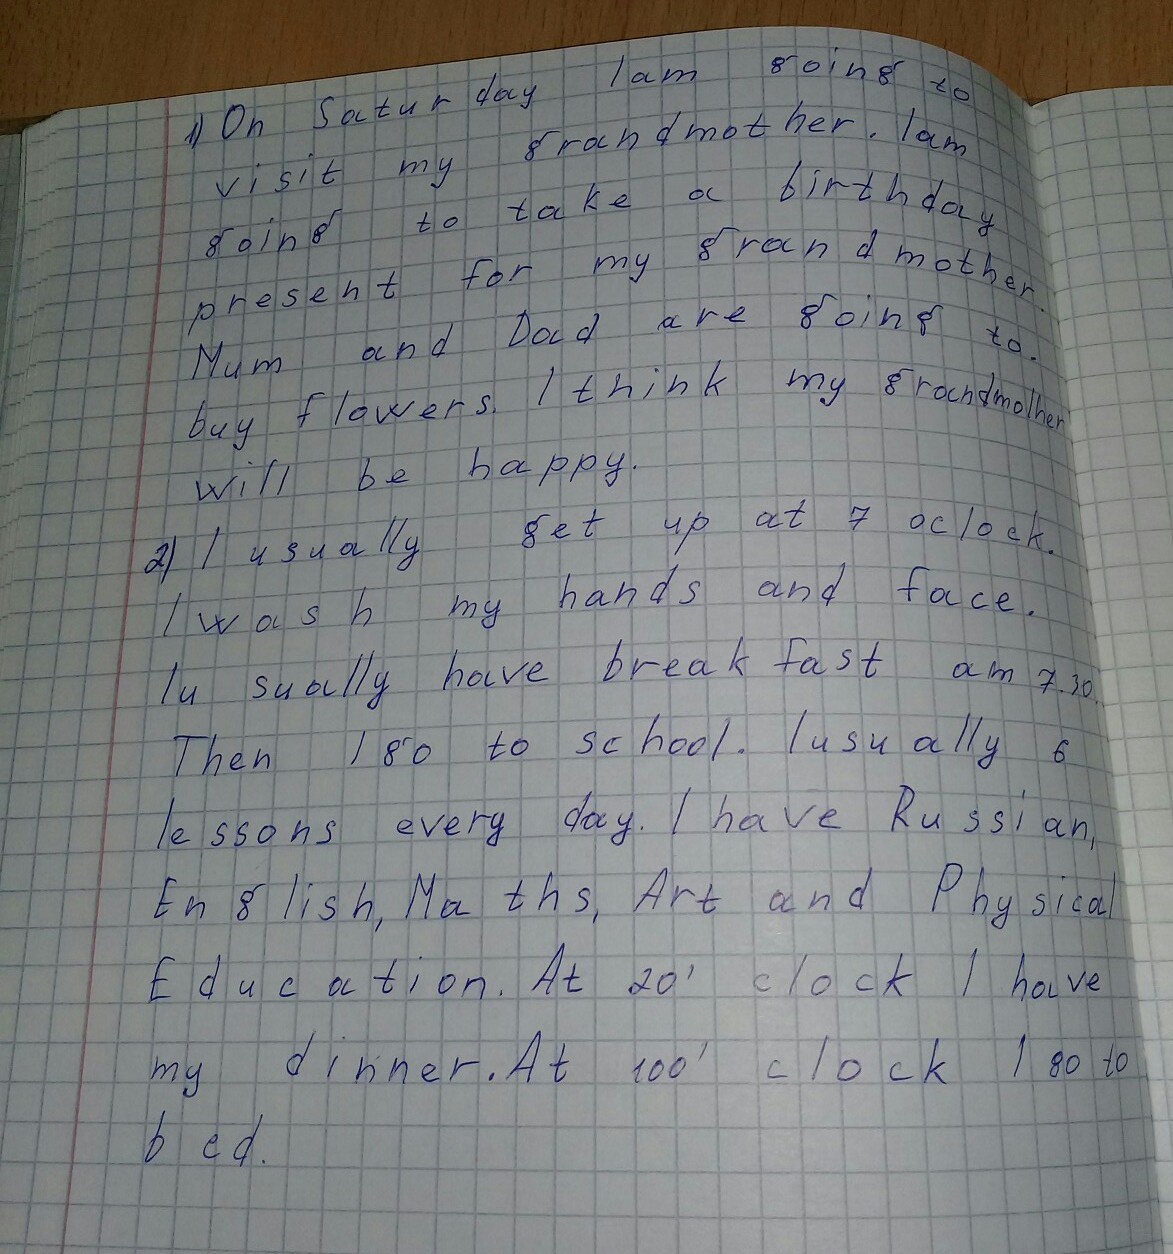 1) On Saturday I am going to
visit my grandmother. I am
going to take a birthday
present for my grandmother.
Mum and Dad are going to.
buy flowers. I think my grandmother
will be happy.
2) I usually get up at 7 oclock.
I wash my hands and face.
I usually have breakfast am 7.30.
Then I go to school. I usually 6
lessons every day. I have Russian,
English, Maths, Art and Physical
Education. At 2o' clock I have
my dinner. At 10o' clock I go to
bed.